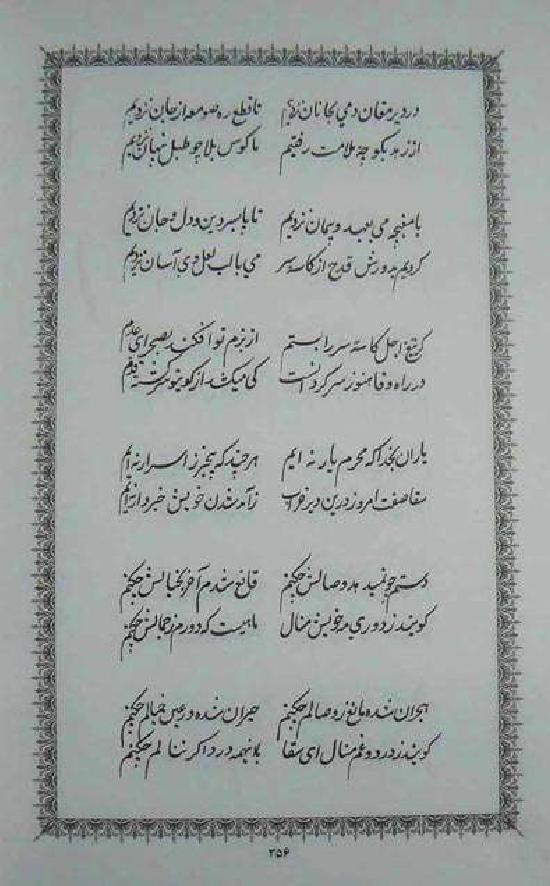 در دیر مغان دمی بجانان نزدیم تا قطع ره صومعه از جان نزدیم
از زهد بکوچهٔ ملامت رفتیم ما کوس بلا چو طبل پنهان نزدیم
با مغبچه می بعهد و پیمان نزدیم تا پا بسر دین و دل و جان نزدیم
کردیم به ورش قدح از کاسه سر می با لب لعل وی آسان نزدیم
گر تیغ اجل کاسهٔ سر را بستم از بزم تو افکند بصحرای عدم
در راه وفا هنوز سر گردانست کی میکشد از کوی تو سرگشته قدم
یاران بخدا که محرم یار نه ایم هر چند که بیخبر ز اسرار نه ایم
سقا صفت امروز درین دیر خراب ز آمد شدن خویش خبردار نه ایم
دستم چو نمیدهد وصالش چکنم قانع نشدم آخر بخیالش چکنم
گویند ز دوری مه خویش منال ماهیست که دورم ز جمالش چکنم
هجران شده مانع ز وصالم چکنم حیران شده در عین خیالم چکنم
گویند ز درد و غم منال ای سقا با اینهمه درد اگر ننالم چکنم
۲۵۶